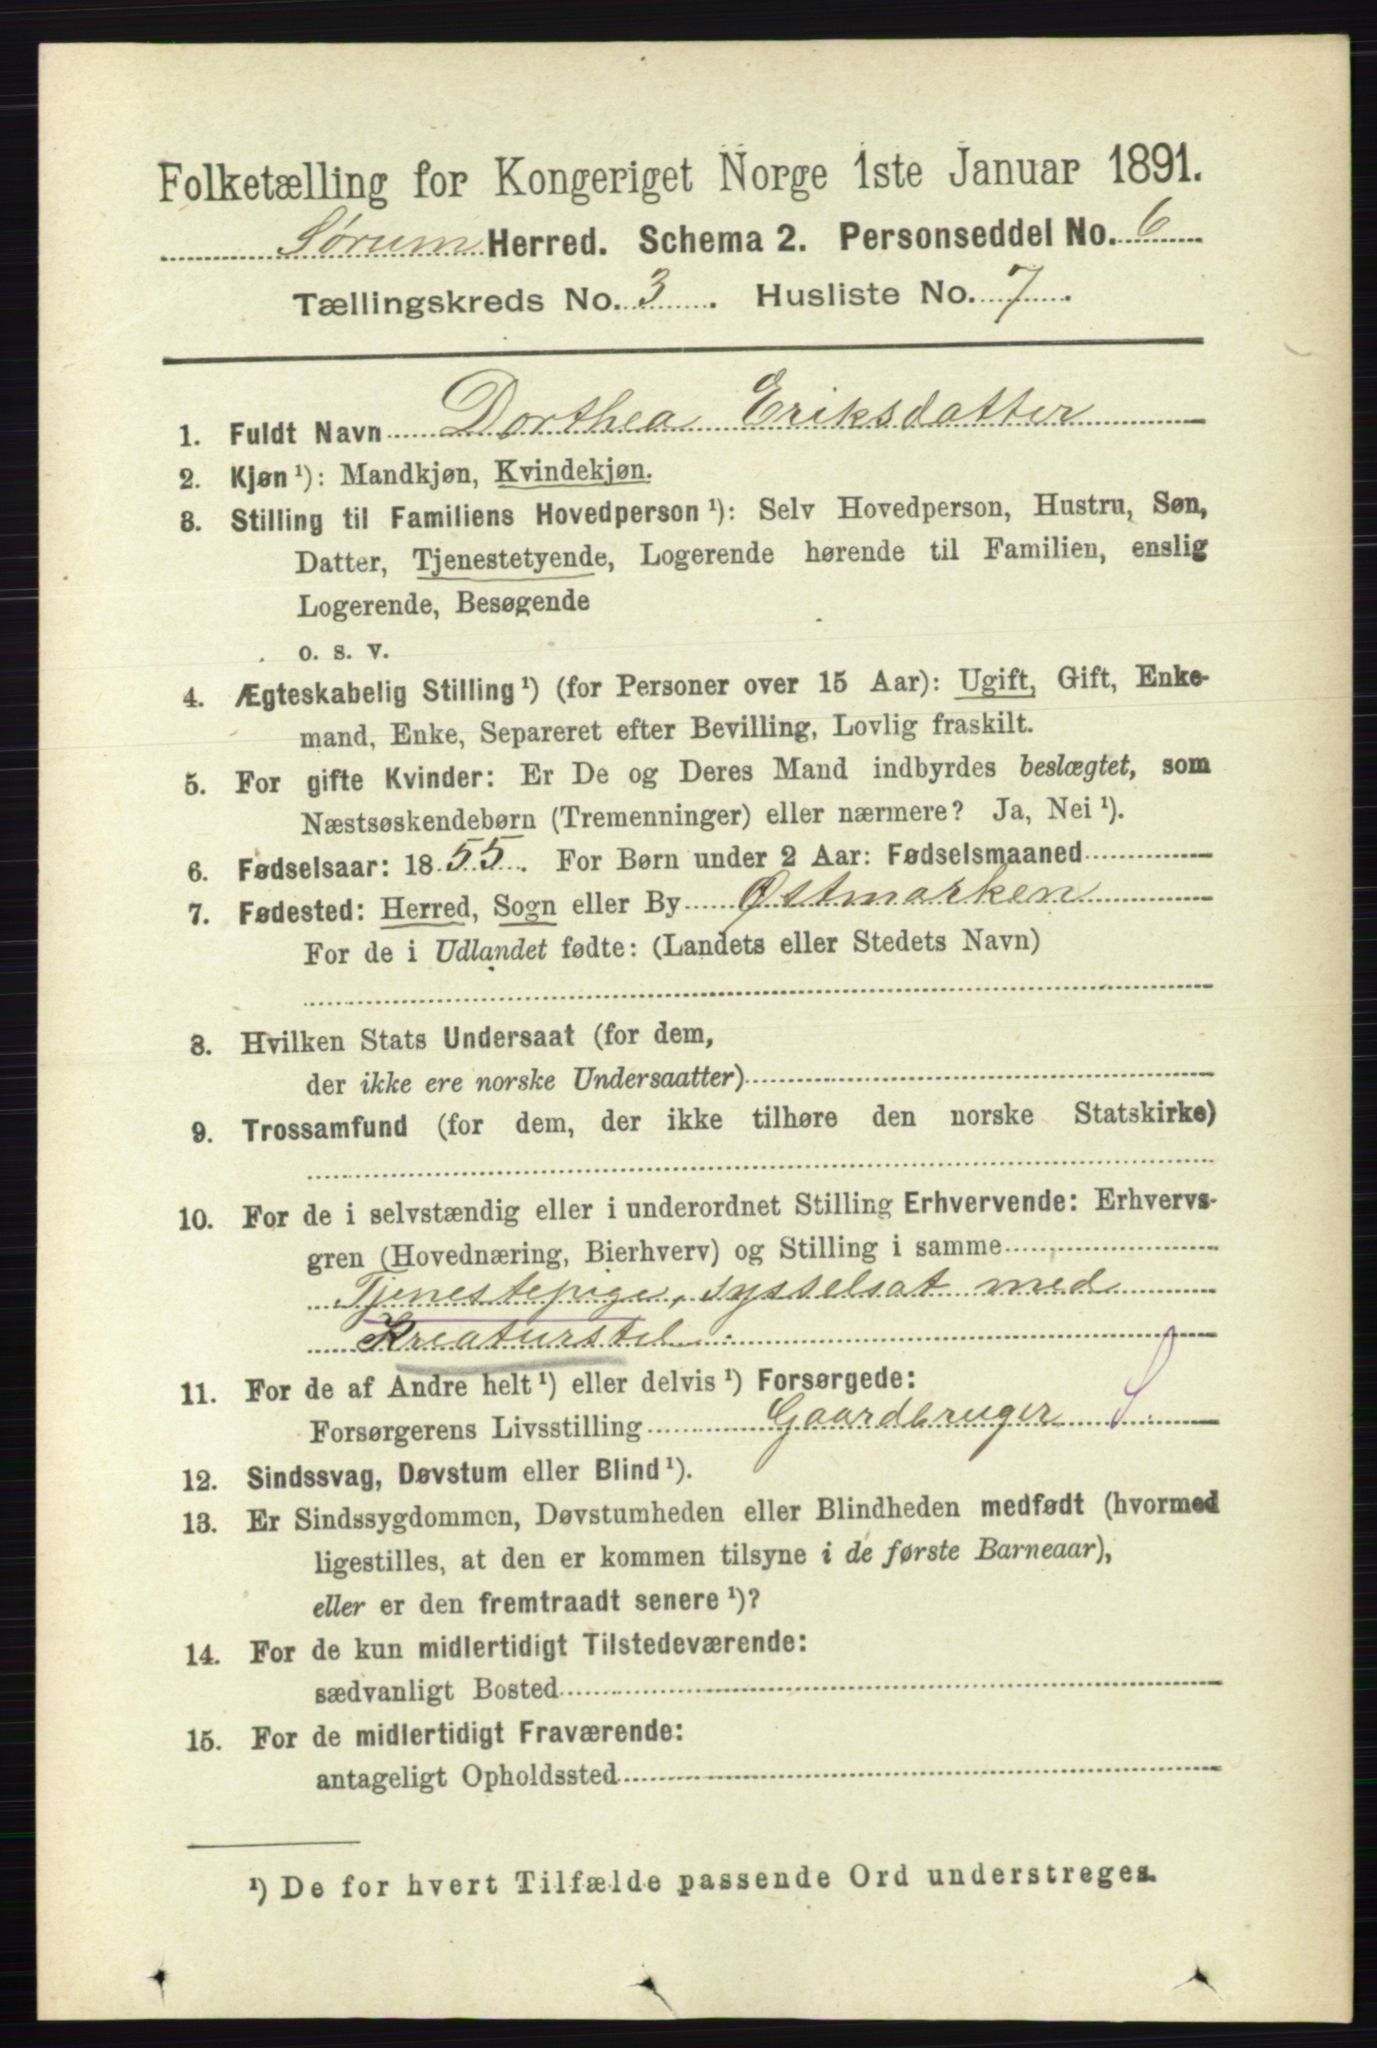 Folketælling for Kongeriget Norge 1ste Januar 1891.
Sørum Herred. Schema 2. Personseddel No. 6
Tællingskreds No. 3. Husliste No. 7.
1. Fuldt Navn Dorthea Eriksdatter
2. Kjøn ¹): Mandkjøn, Kvindekjøn.
3. Stilling til Familiens Hovedperson ¹): Selv Hovedperson, Hustru, Søn,
Datter, Tjenestetyende, Logerende hørende til Familien, enslig
Logerende, Besøgende
o. s. v.
4. Ægteskabelig Stilling ¹) (for Personer over 15 Aar): Ugift, Gift, Enke-
mand, Enke, Separeret efter Bevilling, Lovlig fraskilt.
5. For gifte Kvinder: Er De og Deres Mand indbyrdes beslægtet, som
Næstsøskendebørn (Tremenninger) eller nærmere? Ja, Nei ¹).
6. Fødselsaar: 1855. For Børn under 2 Aar: Fødselsmaaned
7. Fødested: Herred, Sogn eller By Østmarken
For de i Udlandet fødte: (Landets eller Stedets Navn)
8. Hvilken Stats Undersaat (for dem,
der ikke ere norske Undersaatter)
9. Trossamfund (for dem, der ikke tilhøre den norske Statskirke)
10. For de i selvstændig eller i underordnet Stilling Erhvervende: Erhvervs-
gren (Hovednæring, Bierhverv) og Stilling i samme
Tjenestepige, sysselsat med
Kreaturstel.
11. For de af Andre helt ¹) eller delvis ¹) Forsørgede:
Forsørgerens Livsstilling Gaardbruger S.
12. Sindssvag, Døvstum eller Blind ¹).
13. Er Sindssygdommen, Døvstumheden eller Blindheden medfødt (hvormed
ligestilles, at den er kommen tilsyne i de første Barneaar),
eller er den fremtraadt senere ¹)?
14. For de kun midlertidigt Tilstedeværende:
sædvanligt Bosted
15. For de midlertidigt Fraværende:
antageligt Opholdssted
¹) De for hvert Tilfælde passende Ord understreges.